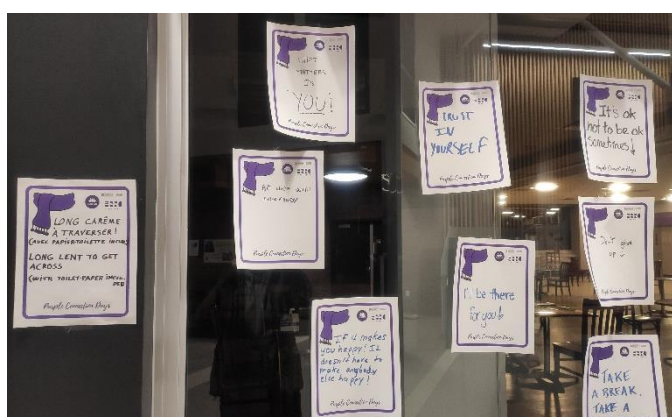 LONG CARÊME
À TRAVERSER!
(AVEC PAPIER-TOILETTE INCLUS)
LONG LENT TO GET
ACROSS
(WITH TOILET-PAPER INCLU-
DED)
Purple Connection Days
WHAT
MATTERS
IS
YOU!
Purple Connection Days
Purple Connection Days
If it makes
you happy! It
doesn't have to
make anybody
else happy!
Purple Connection Days
TRUST
IN
YOURSELF
Purple Connection Days
I'll be there
for you!
Purple Connection Days
It's ok
not to be ok
sometimes!
Purple Connection Days
Don't give
up
Purple Connection Days
TAKE
A BREAK.
TAKE A